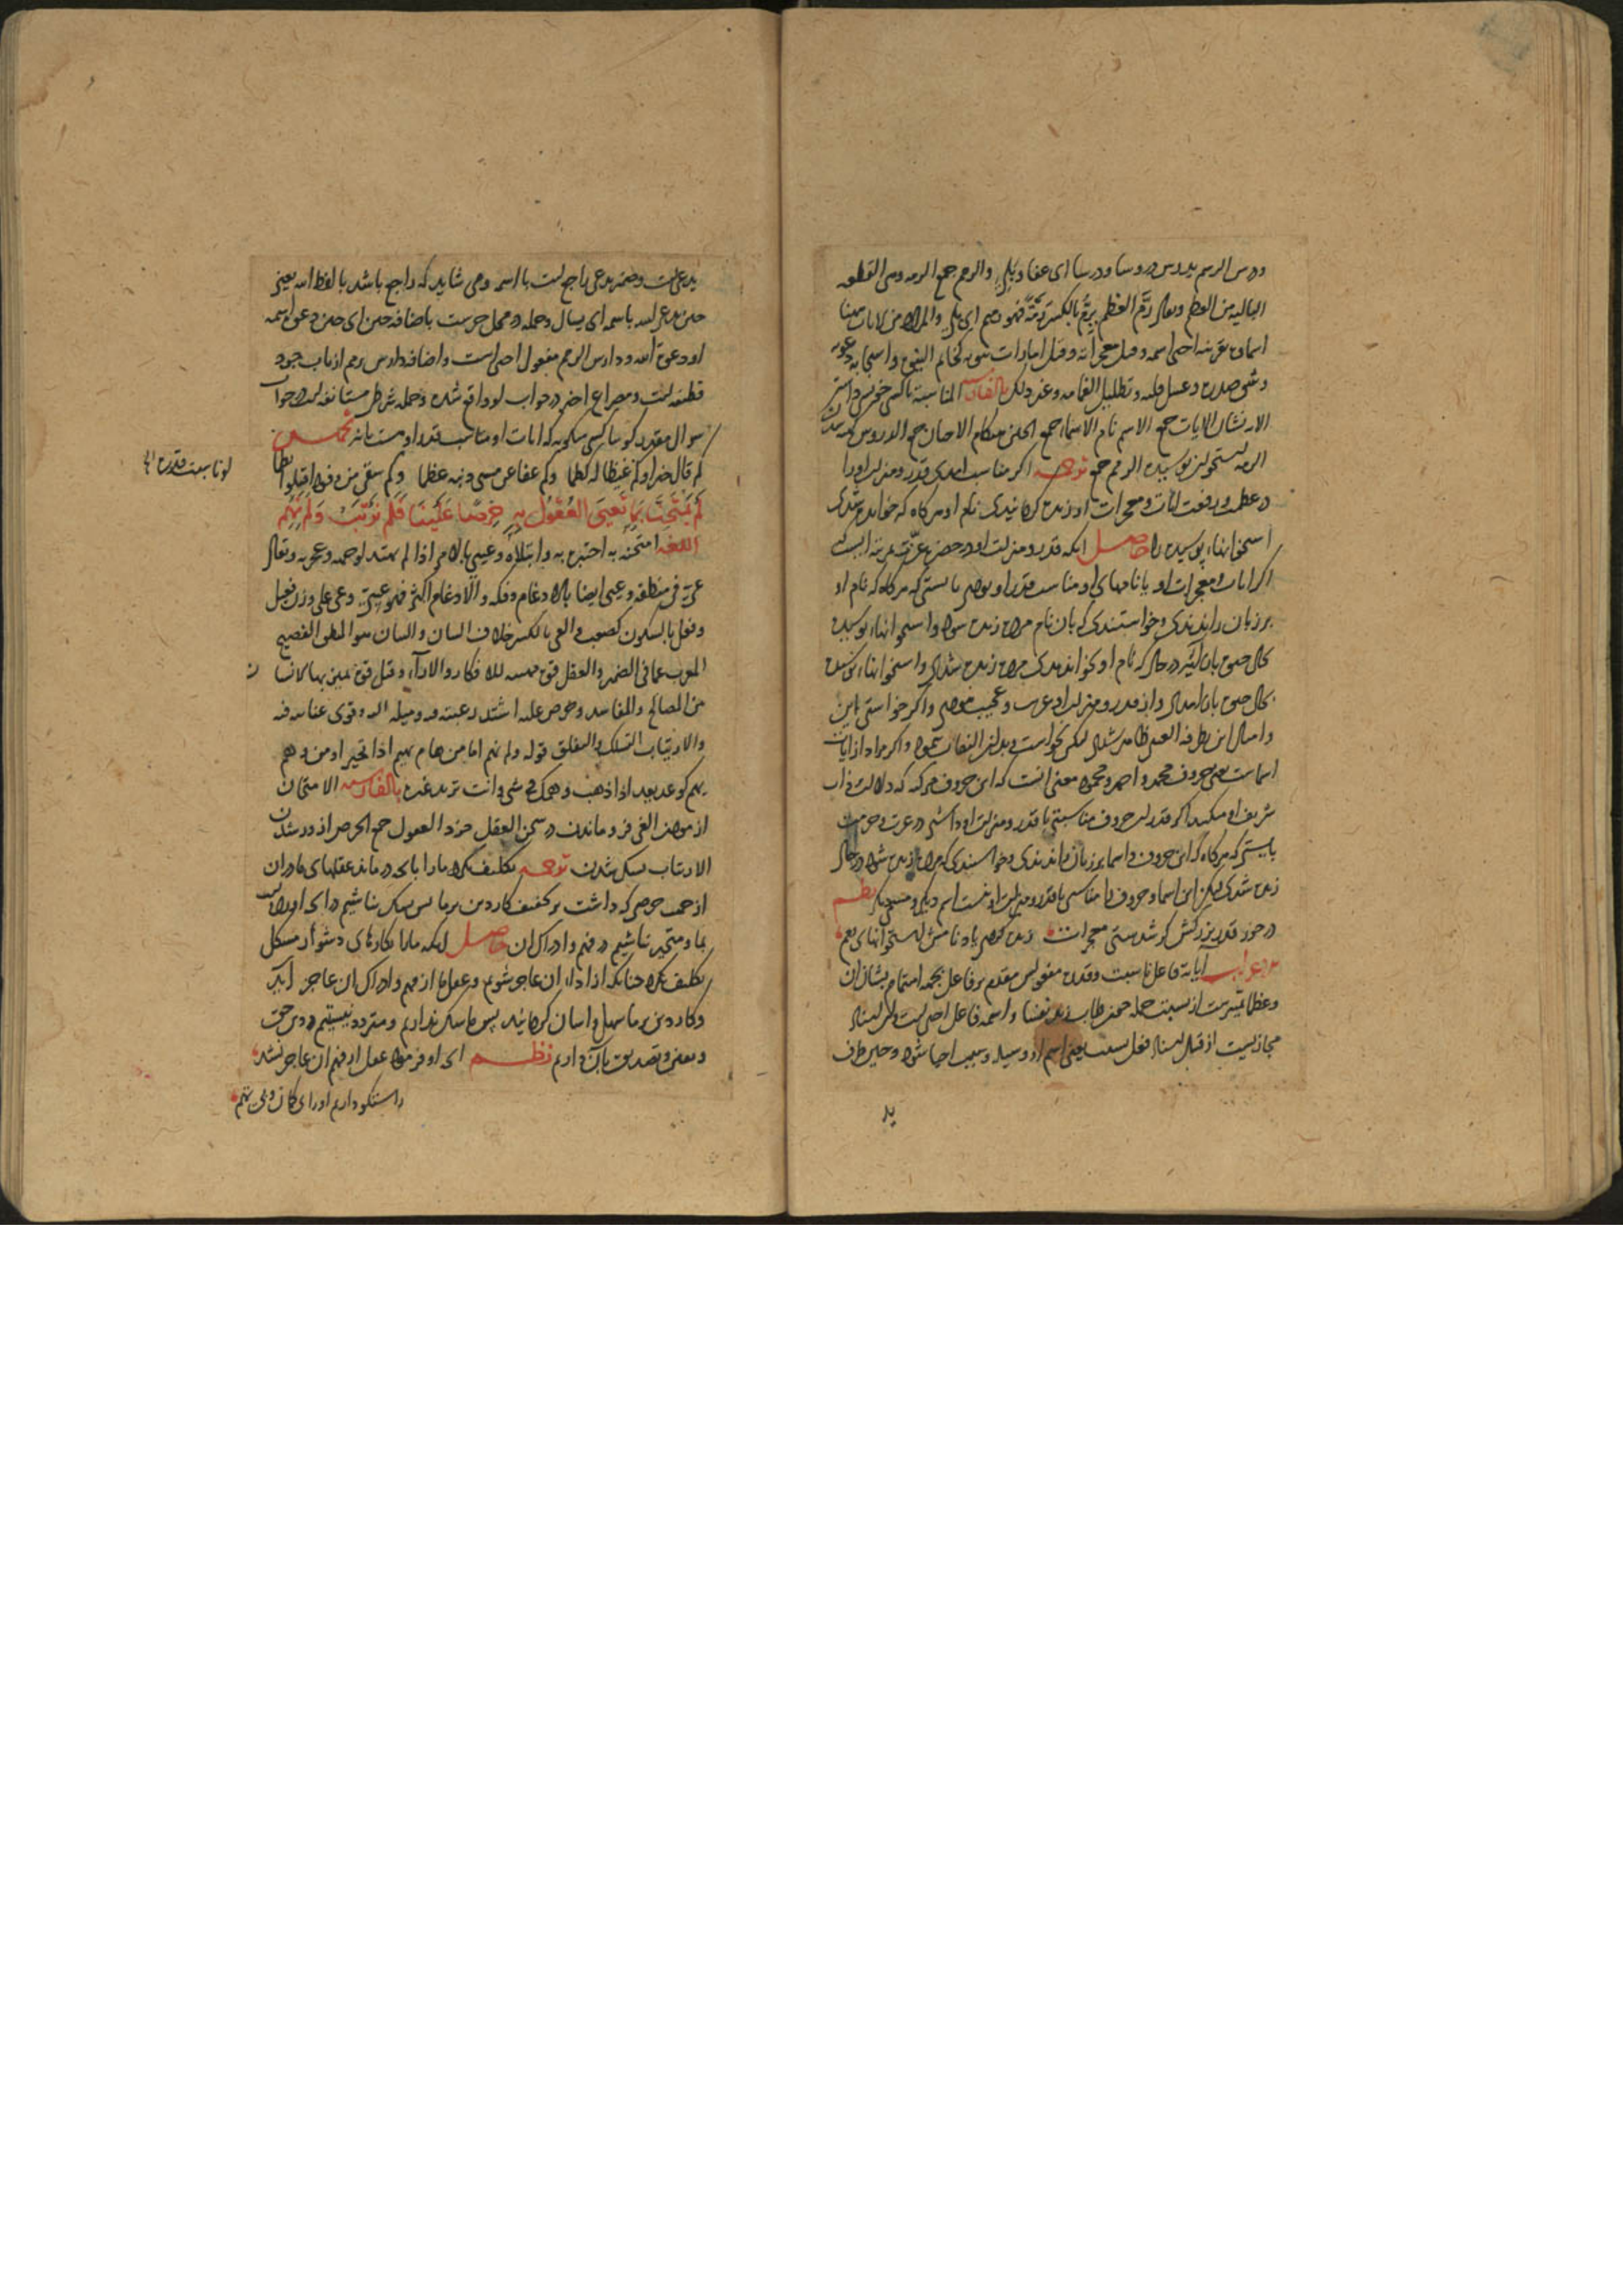 ودرس الرسم يدرس دروسا ودرسا اى عفا وبلى والرمم جمع الرمه وهى القطعه
الباليه من العظم ويقال رَمَّ العَظم يرِمُّ بالكسر رِمَّةً فهو رميم اى بلى والمراد من الايات ههنا
اسماؤه بقرينه احيى اسمه وقيل معجزاته وقيل امارات نبوته كخاتم النبوة واستجابه دعوته
وشق صدره وغسل قلبه وتظليل الغمامه وغير ذلك بالفارسيه المناسبة با كسى
الايه نشان الايات جمع الاسم نام الاسماء جمع الحين هنكام الاحيان جمع الدروس كهنه شدن
الرمه استخوان پوسيده الرمم جمع توجيه اكر مناسب امدى قدر ومنزلت اورا
در عظمت ورفعت ايات ومعجزات او زنده كردانيدى نام او هركاه كه خوانده شدى
استخوانهاء پوسيده را حاصل انكه قدر ومنزلت او در حضرت عزت بمرتبه ايست كه
اكر ايات ومعجزات او يا نامهاى او مناسب قدر او بودى بايستى كه هركاه كه نام او
بر زبان راندندى وخواستندى كه بان نام مرده زنده شود واستخوانهاء پوسيده
بحال حيوة باز ايد در حال كه نام او بخواندندى مرده زنده شدى واستخوانهاء پوسيده
بحال حيوة باز امدى واز قدر ومنزلت او غريب وعجيب نبودى واكر خواستى اين
وامثال اين بطرفة العين ظاهر شدى ليكن نخواست وبدان التفات ننمود واكر مراد از ايات
اسماست يعنى حروف محمد واحمد ومحمود معنى انست كه اين حروف مركبه كه دلالت بر ذات
شريف او ميكند اكر قدر اين حروف مناسبتى با قدر ومنزلت او داشتى در عزت وحرمت
بايستى كه هركاه كه اين حروف واسما بر زبان راندندى وخواستندى كه مرده زنده شود در حال
زنده شدى ليكن اين اسما وحروف را مناسبتى با قدر ومنزلت او نيست اسم ديكر ومسمى ديكر نظم
در خور قدر بزركش كر شدستى معجزات زنده كردى ياد نامش استخوانهاى رمم
اعراب آياته فاعل ناسبت وقدره مفعولش مقدم بر فاعل بجهت اهتمام بشان ان
وعظما تميزست از نسبت جمله همچو طاب زيد نفسا واسمه فاعل احيى است واين اسناد
مجازيست از قبيل اسناد فعل بسبب يعنى اسم او وسيله وسبب احيا شود وحين ظرف
يد
يدعى است وضمير يدعى راجع است با اسمه ومى شايد كه راجع باشد با لفظ الله يعنى
حين يدعى الله باسمه اى يسال وجمله در محل جرست باضافه حين اى حين دعوة اسمه
او دعوة الله ودارس الرمم مفعول احيى است واضافه دارس رمم از باب جرد
قطيفه است ومصراع اخير در جواب لو واقع شده وجمله شرطى مستانفه است در جواب
سوال مقدر كويا كسى ميكويد كه ايات او مناسب قدر او هست يا نه تخميس
لو ناسبت قدره الخ
كم قال خيرا وكم غيظا له كظما وكم عفا عن مسى ذنبه عظما وكم سقى من
لَمْ يَمْتَحِنَّا بِمَا تَعْيَى العُقُولُ بِهِ حِرْصًا عَلَيْنَا فَلَمْ نَرْتَبْ وَلَمْ نَهِمِ
اللغه امتحنه به اختبره به وابتلاه وعيى بالامر اذا لم يهتد لوجهه وعجز به ويقال
عى فى منطقه وعيى ايضا بالادغام وفكه والادغام اكثر فهو عيىّ وعى على وزن فعيل
وفعل بالسكون كصعب والعى بالكسر خلاف البيان والبيان هو المنطق الفصيح
المعرب عما فى الضمير والعقل قوة مهيئه للافكار والاراء وقيل قوة يميز بها الانسان
من المصالح والمفاسد وحرص عليه اشتد رغبته فيه وميله اليه وقوى عنايته فيه
والارتياب التشكك والتقلق قوله ولم نهم اما من هام يهيم اذا تحير او من وهم
يهم كوعد يعد اذا ذهب وهمك الى شى وانت تريد غيره بالفارسيه الامتحان
ازمودن العى فرو ماندن در سخن العقل خرد العقول جمع الحرص ازورشدن
الارتياب بشك شدن توجيه تكليف نكرد مارا بانچه در ماند عقلهاى ما دران
از جهت حرصى كه داشت بر تخفيف كار دين بر ما پس بشك نباشيم در انچه اورده است
بما ومتحير نباشيم در فهم وادراك ان حاصل انكه مارا بكارهاى دشوار مشكل
تكليف نكرد چنانكه از اداى ان عاجز شويم وعقل ما از فهم وادراك ان عاجز آيد
وكار دين بر ما سهل واسان كردانيد پس ما شك نداريم ومتردد نيستيم در دين حق
ويقين وتصديق بان داريم نظم انچه او فرمود عقل از فهم ان عاجز نشد
راستكو داريم اورا بى كمان وبى تهم